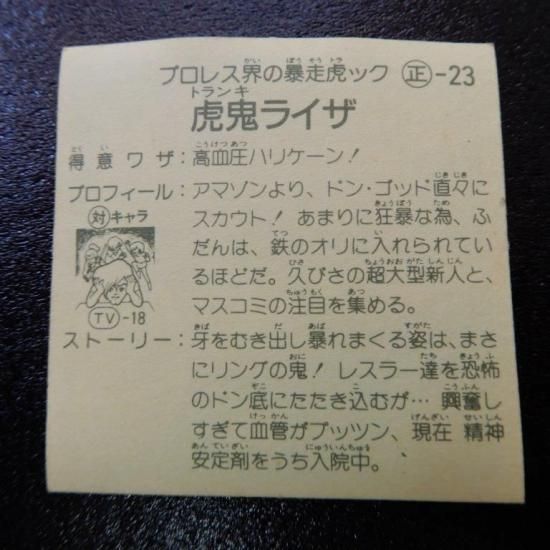 プロレス界の暴走虎ック ㊣-23
虎鬼ライザ
得意ワザ:高血圧ハリケーン!
プロフィール:アマゾンより、ドン・ゴッド直々に
スカウト! あまりに狂暴な為、ふ
だんは、鉄のオリに入れられてい
るほどだ。久びさの超大型新人と、
マスコミの注目を集める。
対キャラ
TV-18
ストーリー:牙をむき出し暴れまくる姿は、まさ
にリングの鬼! レスラー達を恐怖
のドン底にたたき込むが… 興奮し
すぎて血管がプッツン、現在 精神
安定剤をうち入院中。